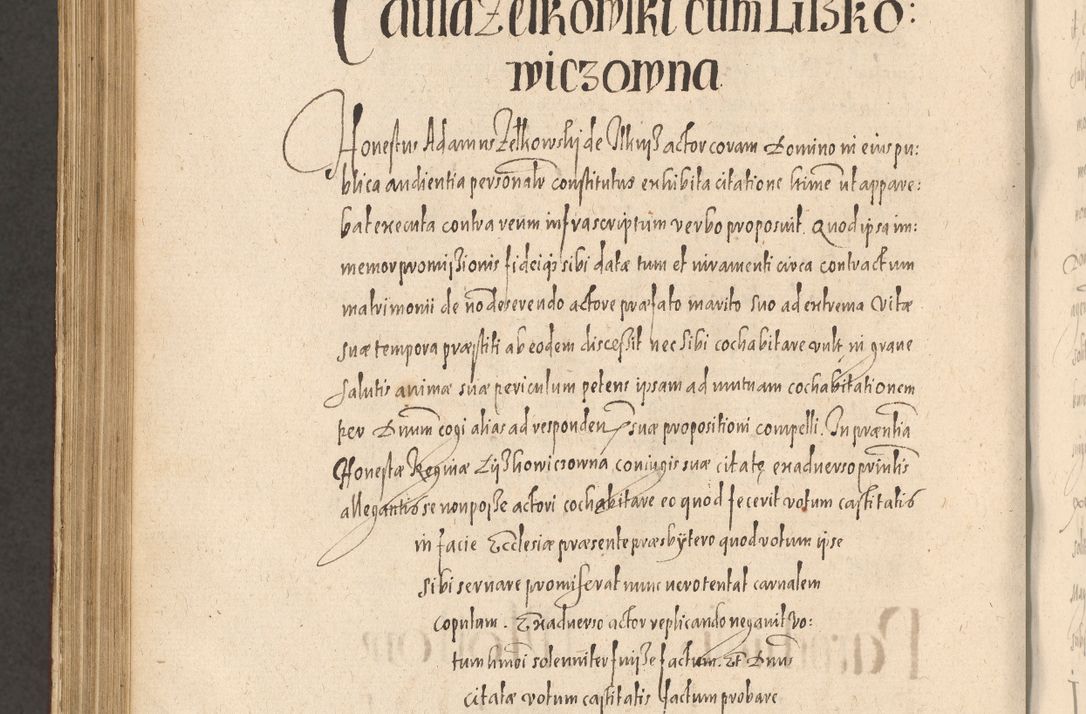 Causa Zelkowski cum Liszko:
wiczowna
Honestus Adamus Zelkowskij de Ilkusz actor coram Domino in eius pu:
blica audientia personaliter constitutus exhibita citatione hrimẽ ut appare:
bat executa contra reum infrascriptum verbo proposuit. Quod ipsa im:
memor promissionis fideiqз sibi datæ tum et iuramenti circa contractum
matrimonii de nõ deserendo actore præfato marito suo ad extrema vitæ
suæ tempora præstiti ab eodem discessit nec sibi cohabitare vult in grave
salutis animæ suæ periculum petens ipsam ad mutuam cochabitationem
per Dnum cogi alias ad responden suæ propositioni compelli. In præntia
Honestæ Reginæ Lijszkowiczowna coniugis suæ citatę ex adverso prinlis
allegantis se non posse actori cochabitare eo quod fecerit votum castitatis
in facie Ecclesiæ præsente præsbÿtero quod votum ipse
sibi servare promiserat nunc vero tentat carnalem
copulam. Ex adverso actor replicando negavit vo:
tum hmõi solenniter fuisse factum. Et Dnus
citatæ votum castitatis factum probare